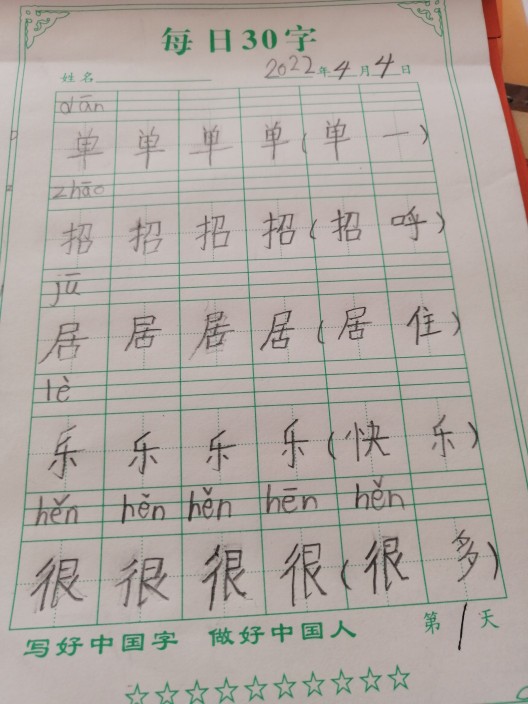 每日30字
姓名 2022年4月4日
dān
单 单 单 单 (单 一)
zhāo
招 招 招 招 (招 呼)
jū
居 居 居 居 (居 住)
lè
乐 乐 乐 乐 (快 乐)
hěn hěn hěn hēn hěn
很 很 很 很 (很 多)
写好中国字 做好中国人 第1天
☆☆☆☆☆☆☆☆☆☆